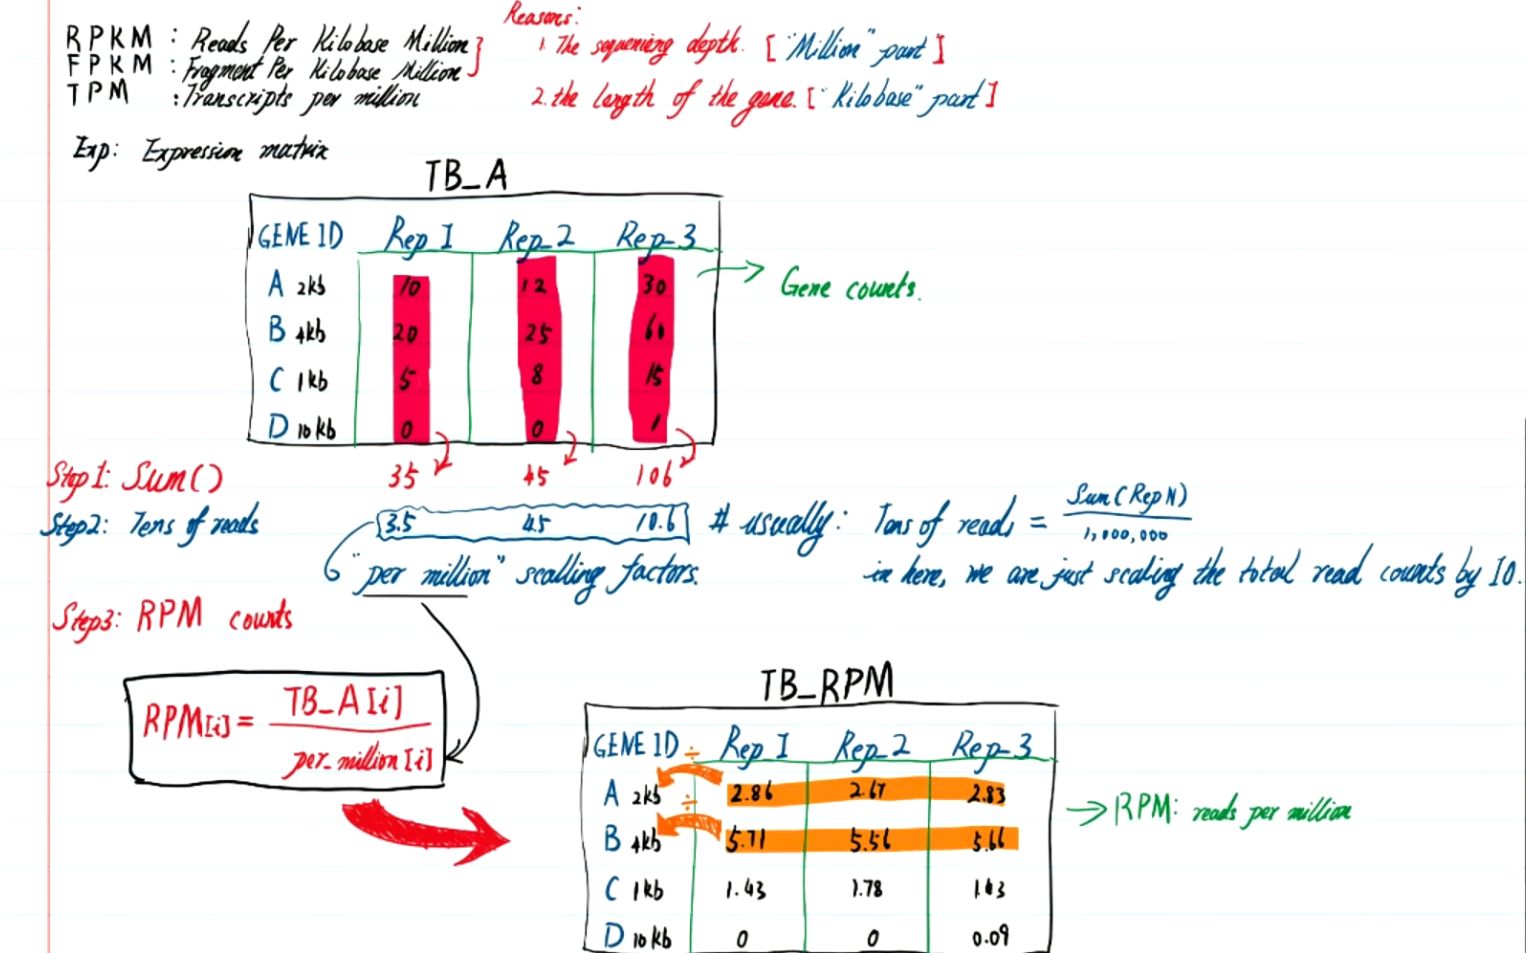 Reasons:
RPKM : Reads Per Kilobase Million
1. The sequening depth. ["Million" part]
FPKM : Fragment Per Kilobase Million
TPM : Transcripts per million
2. the length of the gene. ["Kilobase" part]
Exp: Expression matrix
TB_A
GENE ID Rep_1 Rep_2 Rep_3
A 2kb 10 12 30
Gene counts.
B 4kb 20 25 60
C 1kb 5 8 15
D 10kb 0 0 1
Step1: Sum() 35 45 106
Step2: Tens of reads 3.5 4.5 10.6 # usually: Tens of reads = Sum(RepN) / 1,000,000
"per million" scalling factors.
in here, we are just scaling the total read counts by 10.
Step3: RPM counts
RPM[i] = TB_A[i] / per_million[i]
TB_RPM
GENE ID ÷ Rep_1 Rep_2 Rep_3
A 2kb ÷ 2.86 2.67 2.83
RPM: reads per million
B 4kb 5.71 5.56 5.66
C 1kb 1.43 1.78 1.43
D 10kb 0 0 0.09